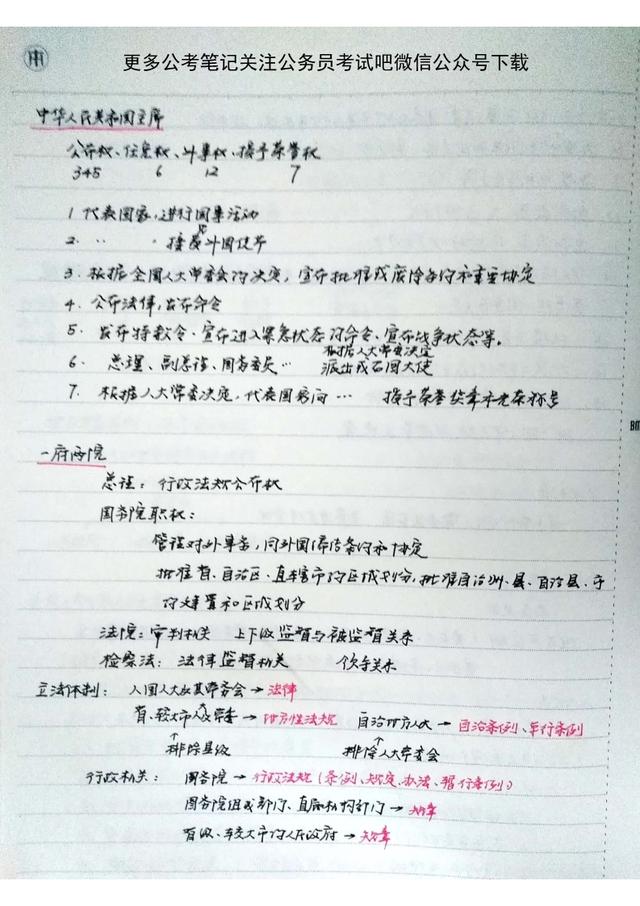 更多公考笔记关注公务员考试吧微信公众号下载
中华人民共和国主席
公布权、任免权、外事权、授予荣誉权
345 6 12 7
1 代表国家,进行国事活动
2. 〃 〃 接受外国使节
3. 根据全国人大常委会的决定,宣布批准或废除条约和重要协定
4. 公布法律,发布命令
5. 发布特赦令、宣布进入紧急状态的命令、宣布战争状态等。
根据人大常委决定
6. 总理、副总理、国务委员… 派出或召回大使
7. 根据人大常委决定,代表国家向… 授予荣誉奖章和光荣称号
一府两院
总理:行政法规公布权
国务院职权:
管理对外事务,同外国缔结条约和协定
批准省、自治区、直辖市的区域划分,批准自治州、县、自治县、市
的建置和区域划分
法院:审判机关 上下级监督与被监督关系
检察法:法律监督机关 领导关系
立法体制:全国人大及其常委会→法律
省、较大市人大常委→地方性法规 自治地方人大→自治条例、单行条例
↑排除县级 ↑排除人大常委会
行政机关:国务院→行政法规(条例、规定、办法、暂行条例)
国务院组成部门、直属机构部门→规章
省级、较大市的人民政府→规章